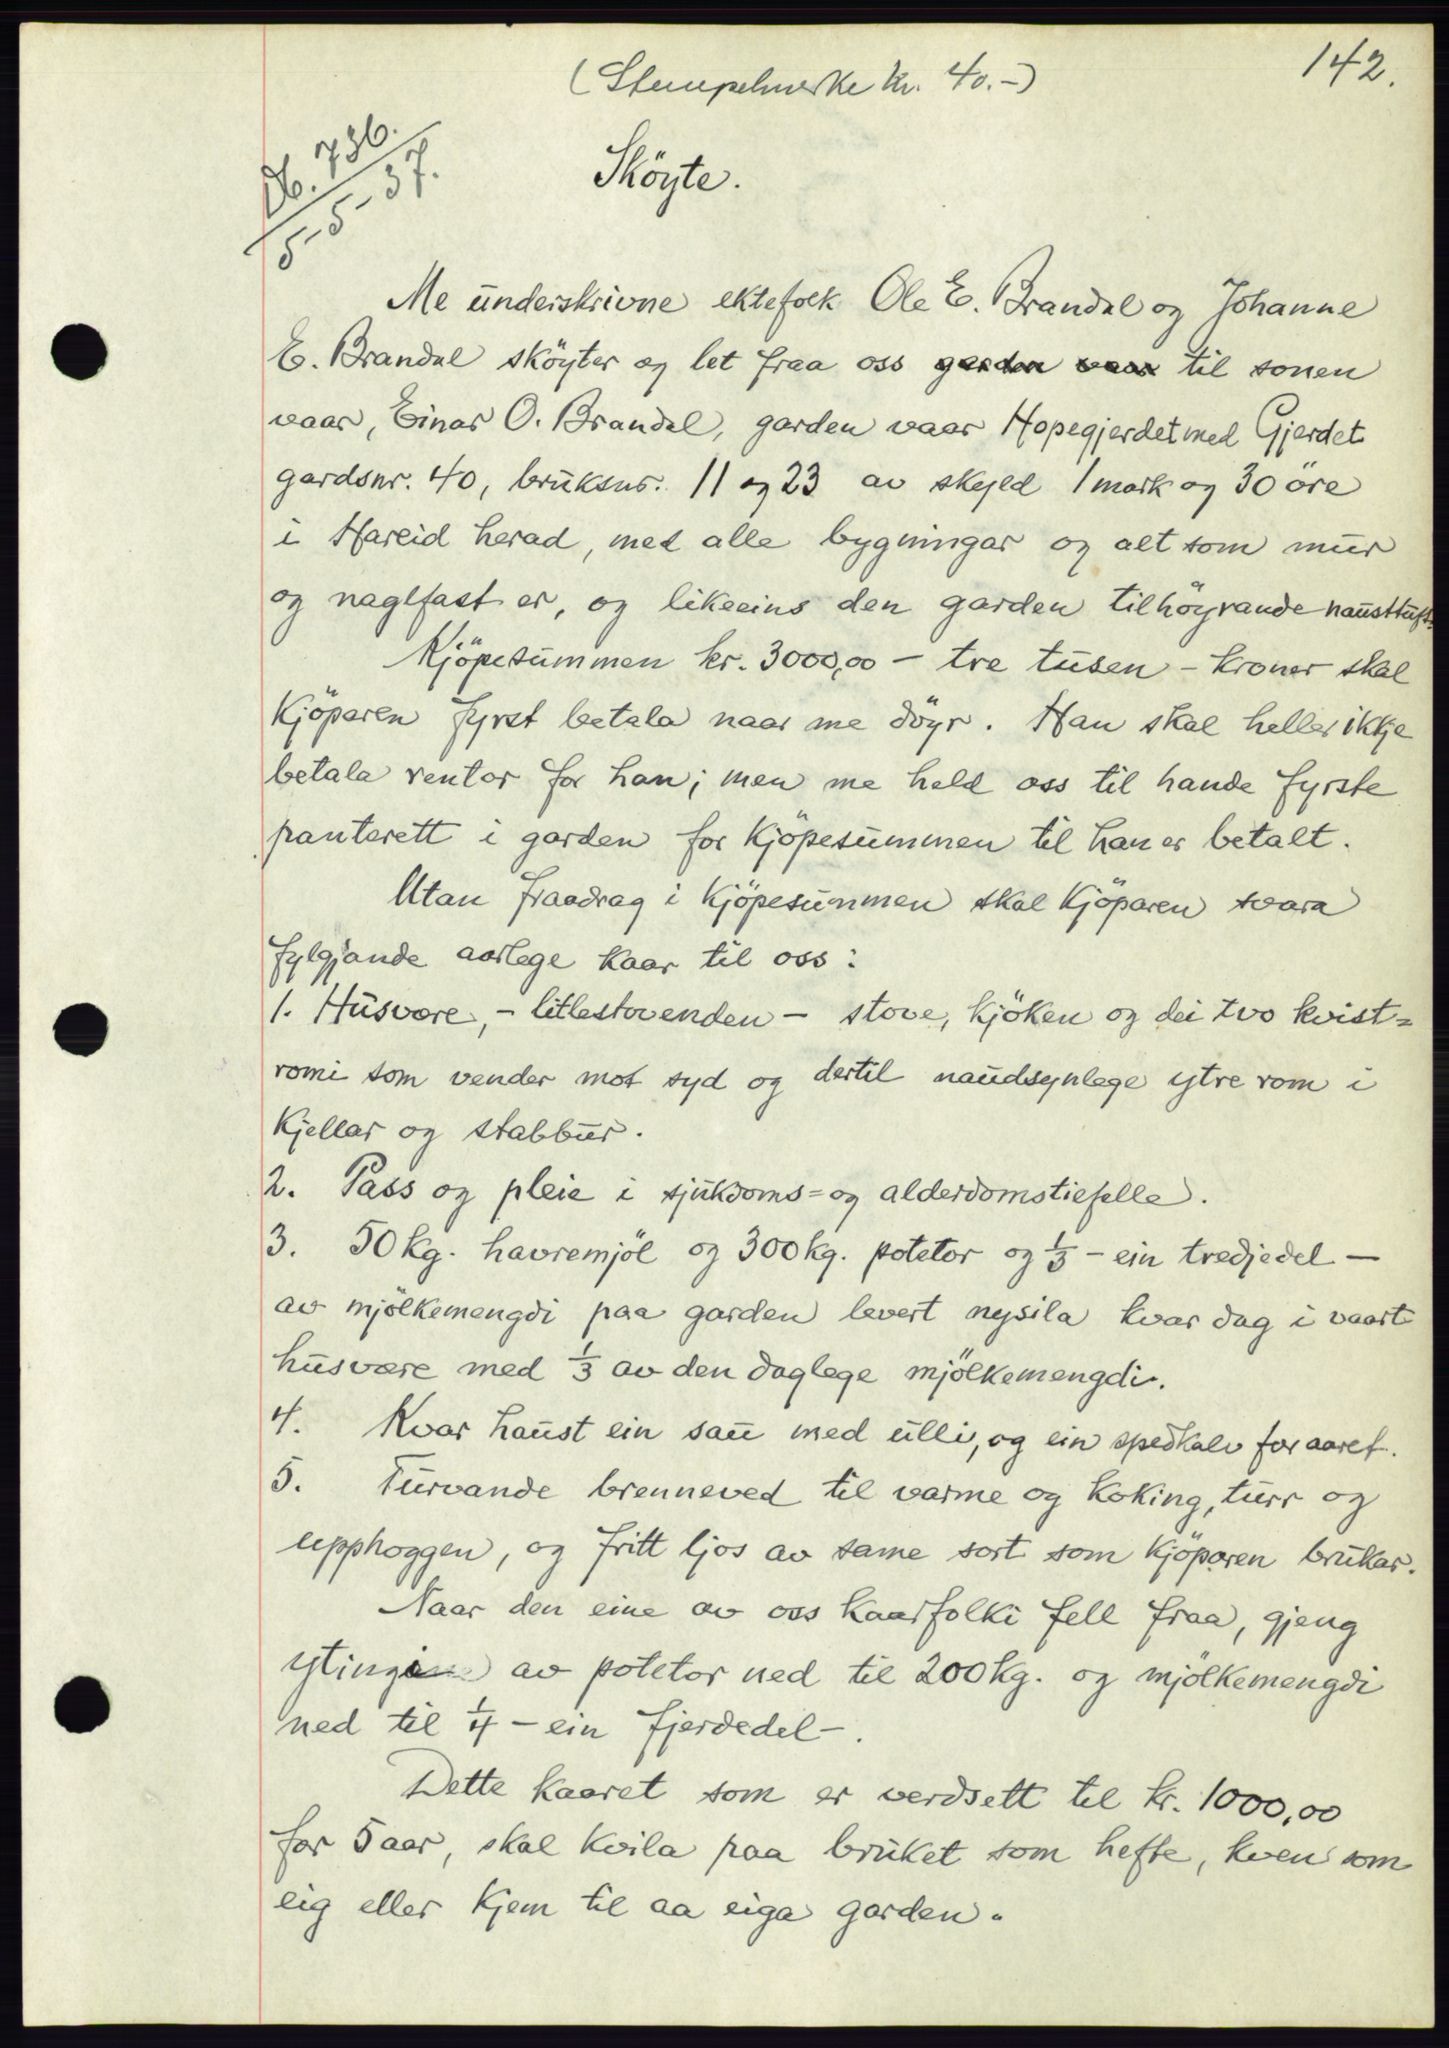 142.
(Stempelmerke kr. 40.-)
Db. 736.
5-5-37.
Sköyte.
Me underskrivne ektefolk Ole E. Brandal og Johanne
E. Brandal sköyter og let fraa oss garden vaar til sonen
vaar, Einar O. Brandal, garden vaar Hopegjerdet med Gjerdet
gardsnr. 40, bruksnr. 11 og 23 av skyld 1 mark og 30 öre
i Hareid herad, med alle bygningar og alt som mur
og naglfast er, og likeeins den garden tilhöyrande nausttuft.
Kjöpesummen kr. 3000,00 - tre tusen - kroner skal
kjöparen fyrst betala naar me döyr. Han skal heller ikkje
betala rentor for han; men me held oss til hande fyrste
panterett i garden for kjöpesummen til han er betalt.
Utan fraadrag i kjöpesummen skal kjöparen svara
fylgjande aarlege kaar til oss:
1. Husvære, - litlestovenden - stove, kjöken og dei two kvist=
romi som vender mot syd og dertil naudsynlege ytre rom i
kjellar og stabbur.
2. Pass og pleie i sjukdoms= og alderdomstilfelle.
3. 50 kg. havremjöl og 300 kg. potetor og 1/3 - ein tredjedel -
av mjölkemengdi paa garden levert nysila kvar dag i vaart
husvære med 1/3 av den daglege mjölkemengdi.
4. Kvar haust ein sau med ulli, og ein spedkalv for aaret.
5. Turvande brenneved til varme og koking, turr og
upphoggen, og fritt ljos av same sort som kjöparen brukar.
Naar den eine av oss kaarfolki fell fraa, gjeng
ytingi av potetor ned til 200 kg. og mjölkemengdi
ned til 1/4 - ein fjerdedel -.
Dette kaaret som er verdsett til kr. 1000,00
for 5 aar, skal kvila paa bruket som hefte, kven som
eig eller kjem til aa eiga garden.